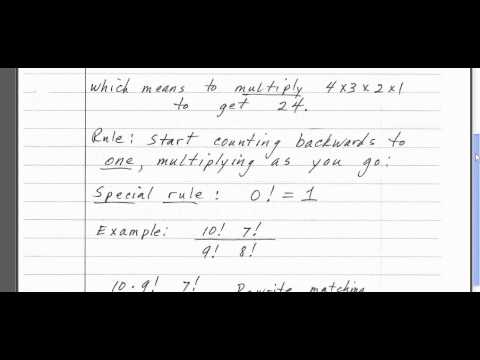 which means to multiply 4x3x2x1
to get 24.
Rule: Start counting backwards to
one, multiplying as you go:
Special rule: 0! = 1
Example: 10! 7!
9! 8!
10 · 9! 7! Rewrite matching